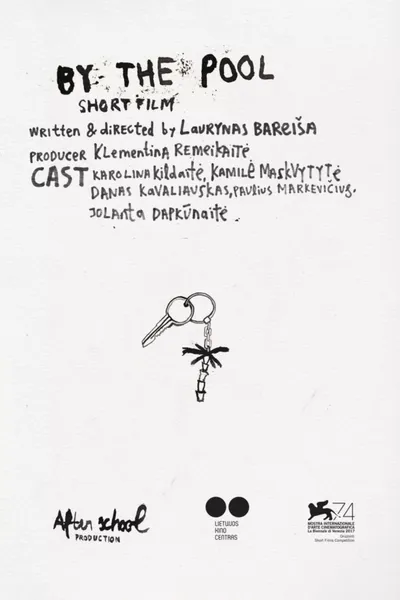 BY THE POOL
SHORT FILM
WRITTEN & DIRECTED by LAURYNAS BAREIŠA
PRODUCER KLEMENTINA REMEIKAITĖ
CAST KAROLINA KILDAITĖ, KAMILĖ MASKVYTYTĖ
DANAS KAVALIAUSKAS, PAULIUS MARKEVIČIUS,
JOLANTA DAPKŪNAITĖ.
After school
PRODUCTION
LIETUVOS
KINO
CENTRAS
74
MOSTRA INTERNAZIONALE
D'ARTE CINEMATOGRAFICA
La Biennale di Venezia 2017
Orizzonti
Short Films Competition